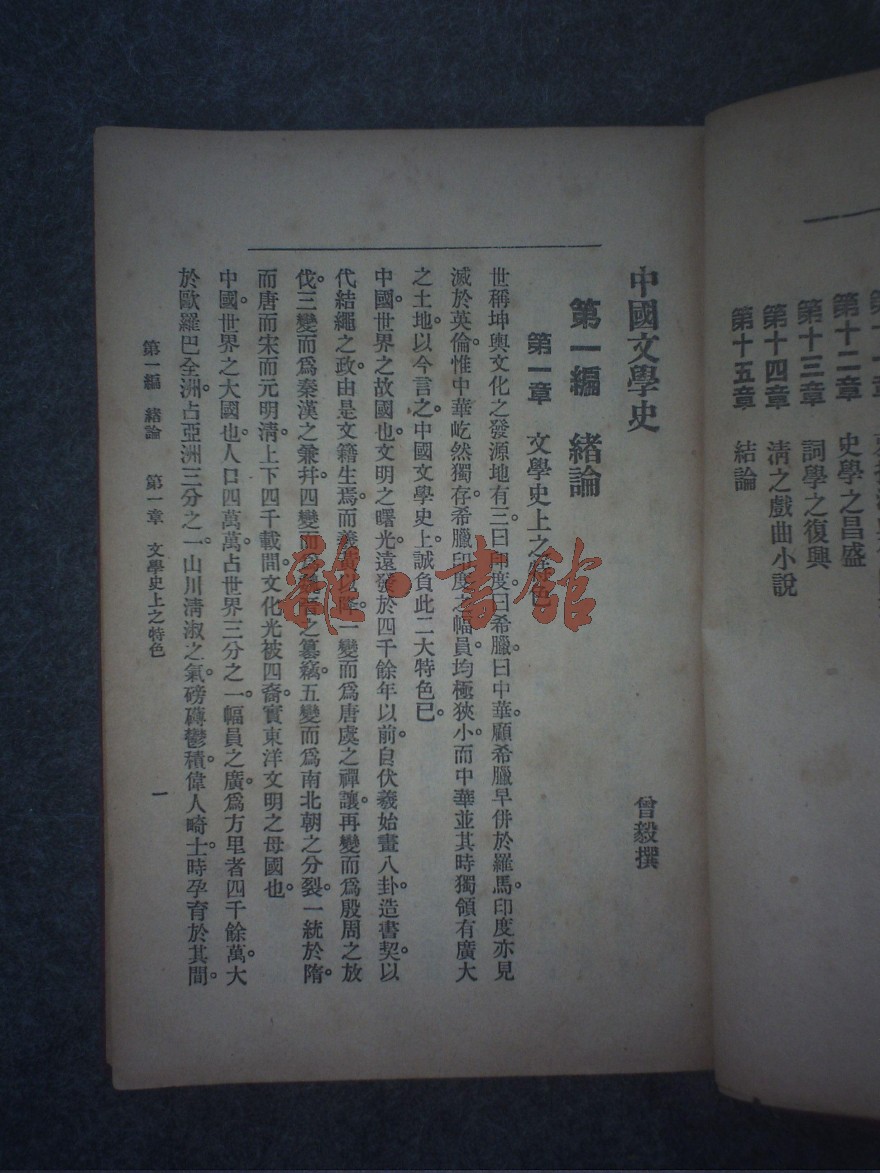 第十二章 史學之昌盛
第十三章 詞學之復興
第十四章 淸之戲曲小說
第十五章 結論
中國文學史
曾毅撰
第一編 緖論
第一章 文學史上之特色
世稱坤輿文化之發源地有三。曰印度。曰希臘。曰中華。顧希臘早併於羅馬。印度亦見
滅於英倫。惟中華屹然獨存。希臘印度之幅員。均極狹小。而中華並其時獨領有廣大
之土地。以今言之。中國文學史上。誠負此二大特色已。
中國。世界之故國也。文明之曙光。遠發於四千餘年以前。自伏羲始畫八卦。造書契。以
代結繩之政。由是文籍生焉。而羲黃以降。一變而爲唐虞之禪讓。再變而爲殷周之放
伐。三變而爲秦漢之兼幷。四變而爲魏晉之篡竊。五變而爲南北朝之分裂。一統於隋。
而唐而宋而元明淸。上下四千載間。文化光被四裔。實東洋文明之母國也。
中國。世界之大國也。人口四萬萬。占世界三分之一。幅員之廣。爲方里者四千餘萬。大
於歐羅巴全洲。占亞洲三分之一。山川淸淑之氣。磅礴鬱積。偉人畸士。時孕育於其間。
第一編 緖論 第一章 文學史上之特色
一
雜·書館